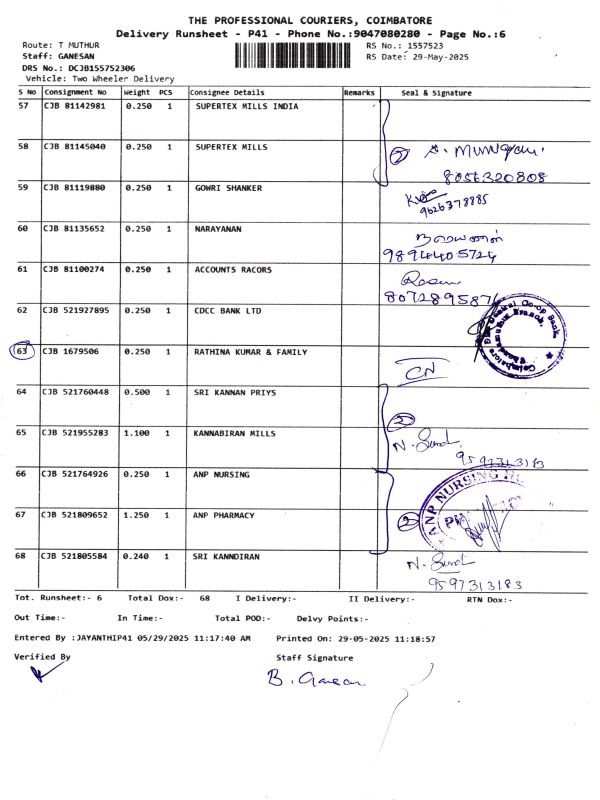 THE PROFESSIONAL COURIERS, COIMBATORE
Delivery Runsheet - P41 - Phone No.:9047080280 - Page No.:6
Route: T MUTHUR RS No.: 1557523
Staff: GANESAN RS Date: 29-May-2025
DRS No.: DCJB155752306
Vehicle: Two Wheeler Delivery
S No Consignment No Weight PCS Consignee Details Remarks Seal & Signature
57 CJB 81142981 0.250 1 SUPERTEX MILLS INDIA
58 CJB 81145040 0.250 1 SUPERTEX MILLS
2 S. Murugan.
8056320808
59 CJB 81119880 0.250 1 GOWRI SHANKER
9626378885
60 CJB 81135652 0.250 1 NARAYANAN
நாராயணன்
9894405724
61 CJB 81100274 0.250 1 ACCOUNTS RACORS
807289587
62 CJB 521927895 0.250 1 CDCC BANK LTD
Coimbatore Dist Central Co-op Bank
Branch,
63 CJB 1679506 0.250 1 RATHINA KUMAR & FAMILY
CN
64 CJB 521760448 0.500 1 SRI KANNAN PRIYS
2
65 CJB 521955283 1.100 1 KANNABIRAN MILLS
9597313183
66 CJB 521764926 0.250 1 ANP NURSING
ANP NURSING
67 CJB 521809652 1.250 1 ANP PHARMACY
2
68 CJB 521805584 0.240 1 SRI KANNDIRAN
9597313183
Tot. Runsheet:- 6 Total Dox:- 68 I Delivery:- II Delivery:- RTN Dox:-
Out Time:- In Time:- Total POD:- Delvy Points:-
Entered By :JAYANTHIP41 05/29/2025 11:17:40 AM Printed On: 29-05-2025 11:18:57
Verified By Staff Signature
B. Ganesan